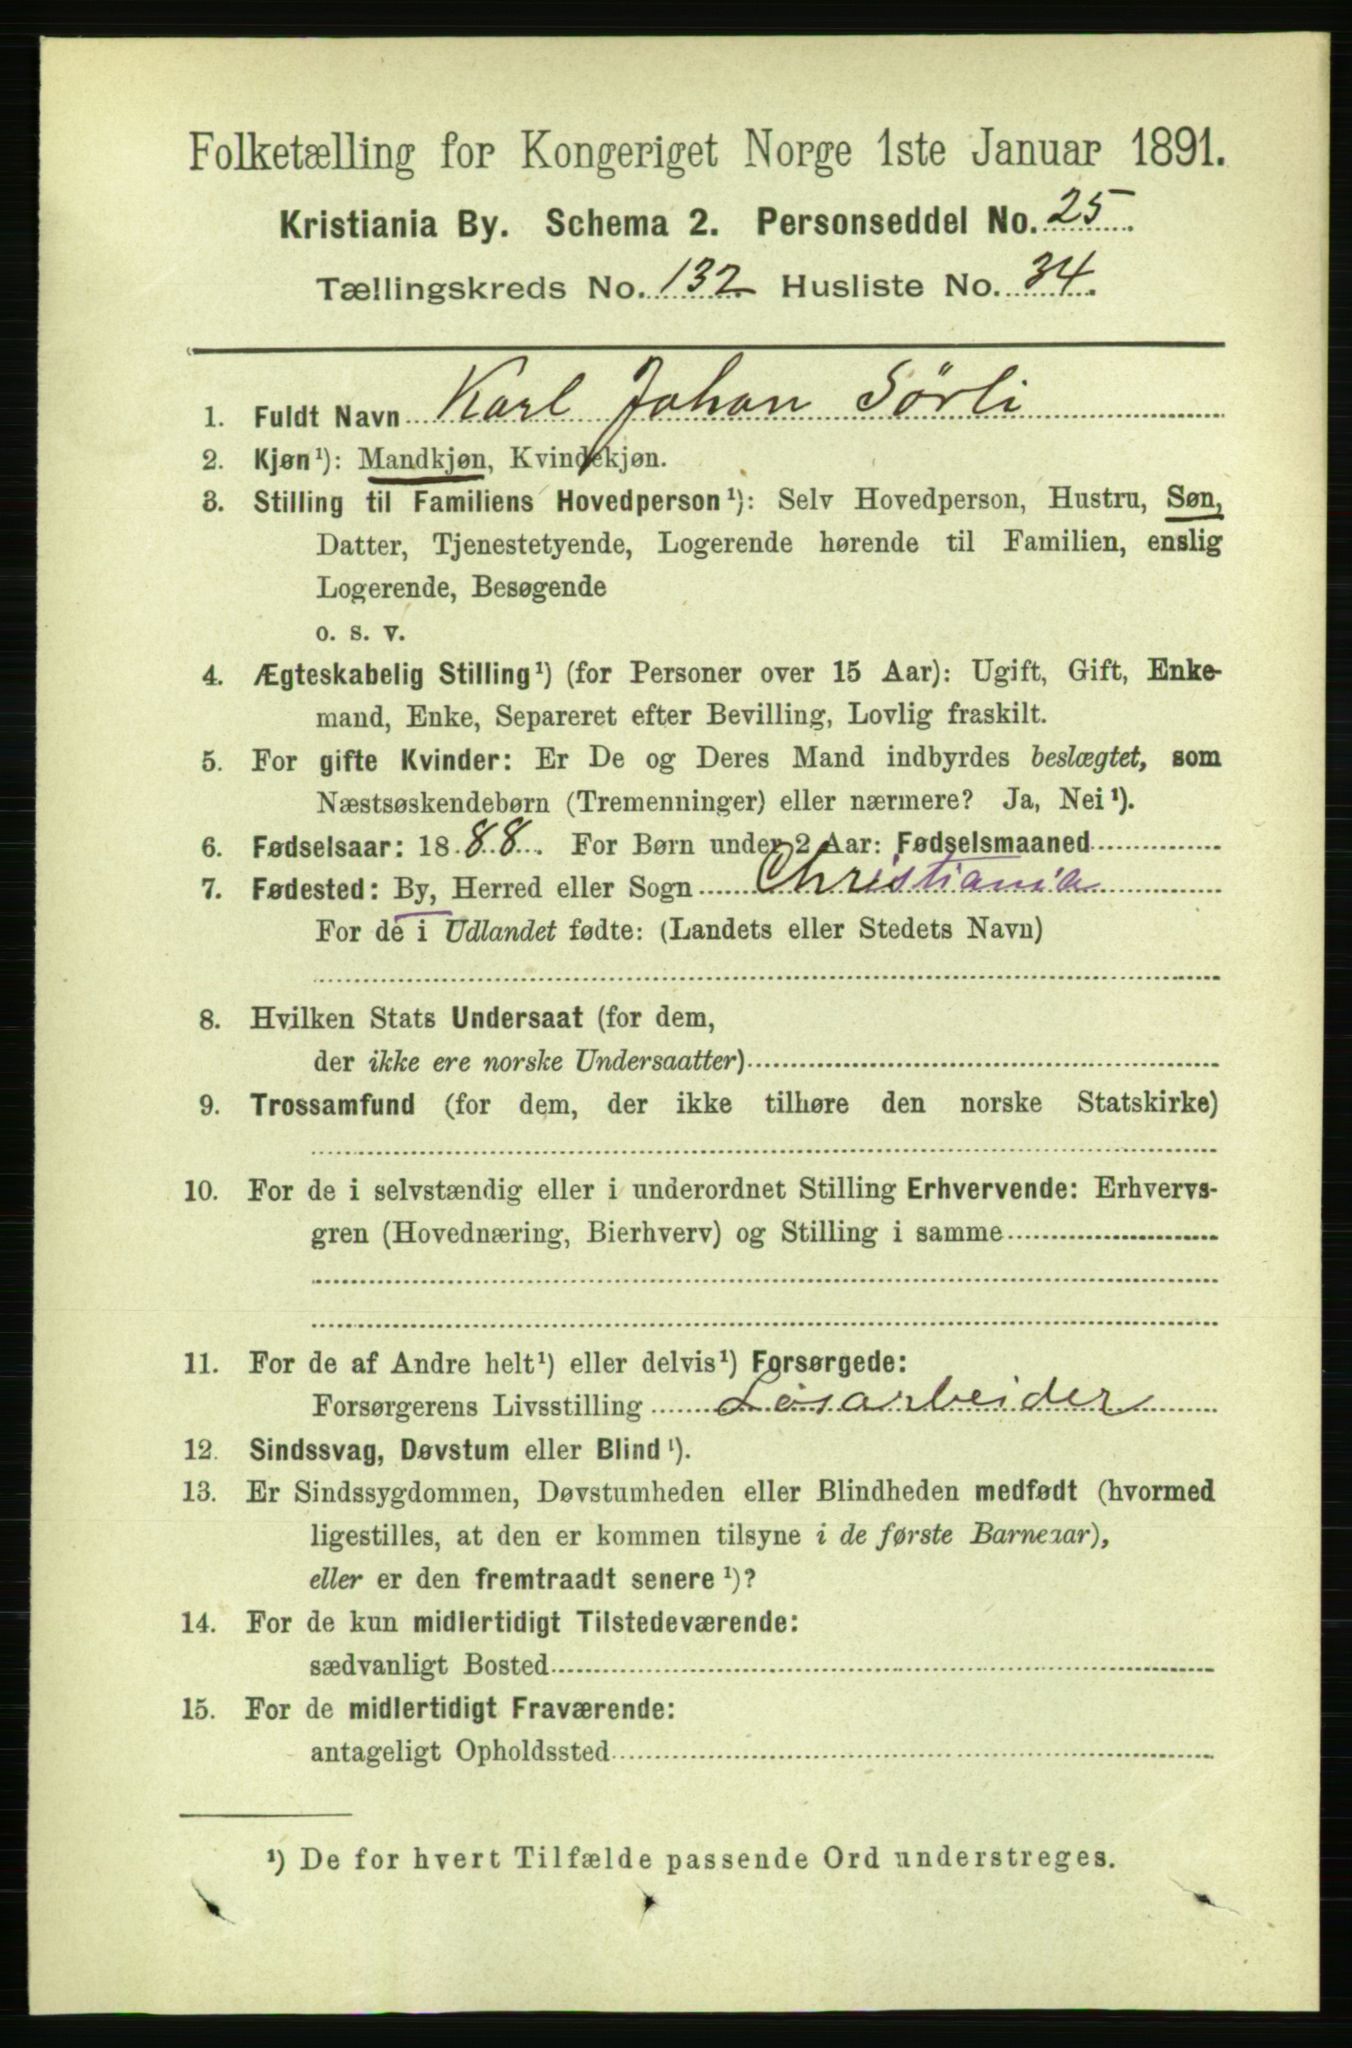 Folketælling for Kongeriget Norge 1ste Januar 1891.
Kristiania By. Schema 2. Personseddel No. 25.
Tællingskreds No. 132 Husliste No. 34.
1. Fuldt Navn Karl Johan Sörli
2. Kjøn¹): Mandkjøn, Kvindekjøn.
3. Stilling til Familiens Hovedperson¹): Selv Hovedperson, Hustru, Søn,
Datter, Tjenestetyende, Logerende hørende til Familien, enslig
Logerende, Besøgende
o. s. v.
4. Ægteskabelig Stilling¹) (for Personer over 15 Aar): Ugift, Gift, Enke-
mand, Enke, Separeret efter Bevilling, Lovlig fraskilt.
5. For gifte Kvinder: Er De og Deres Mand indbyrdes beslægtet, som
Næstsøskendebørn (Tremenninger) eller nærmere? Ja, Nei¹).
6. Fødselsaar: 1888. For Børn under 2 Aar: Fødselsmaaned
7. Fødested: By, Herred eller Sogn Christiania
For de i Udlandet fødte: (Landets eller Stedets Navn)
8. Hvilken Stats Undersaat (for dem,
der ikke ere norske Undersaatter)
9. Trossamfund (for dem, der ikke tilhøre den norske Statskirke)
10. For de i selvstændig eller i underordnet Stilling Erhvervende: Erhvervs-
gren (Hovednæring, Bierhverv) og Stilling i samme
11. For de af Andre helt¹) eller delvis¹) Forsørgede:
Forsørgerens Livsstilling Løsarbeider
12. Sindssvag, Døvstum eller Blind¹).
13. Er Sindssygdommen, Døvstumheden eller Blindheden medfødt (hvormed
ligestilles, at den er kommen tilsyne i de første Barneaar),
eller er den fremtraadt senere¹)?
14. For de kun midlertidigt Tilstedeværende:
sædvanligt Bosted
15. For de midlertidigt Fraværende:
antageligt Opholdssted
¹) De for hvert Tilfælde passende Ord understreges.